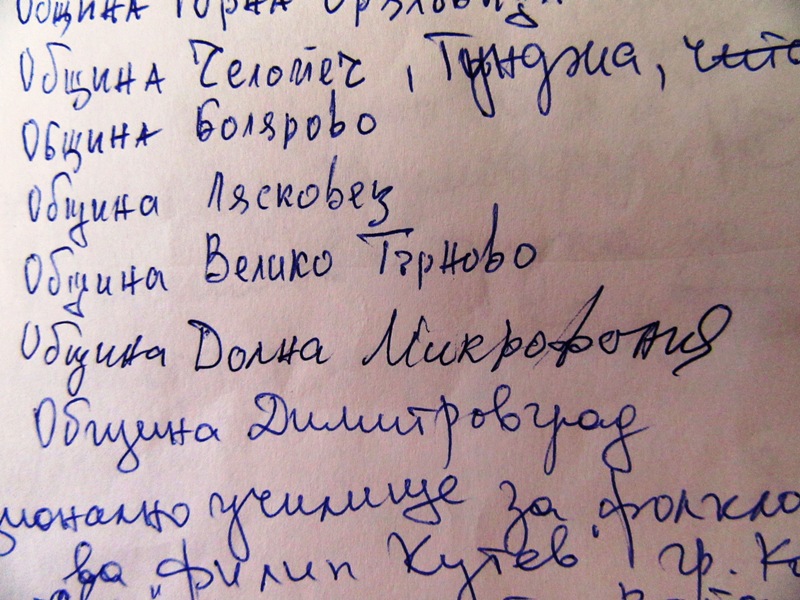 Община Горна Оряховица
Община Челопеч, Тунджа,
Община Болярово
Община Лясковец
Община Велико Търново
Община Долна Микрофония
Община Димитровград
ционално училище за фолкло
ва "Филип Кутев" гр. Ко